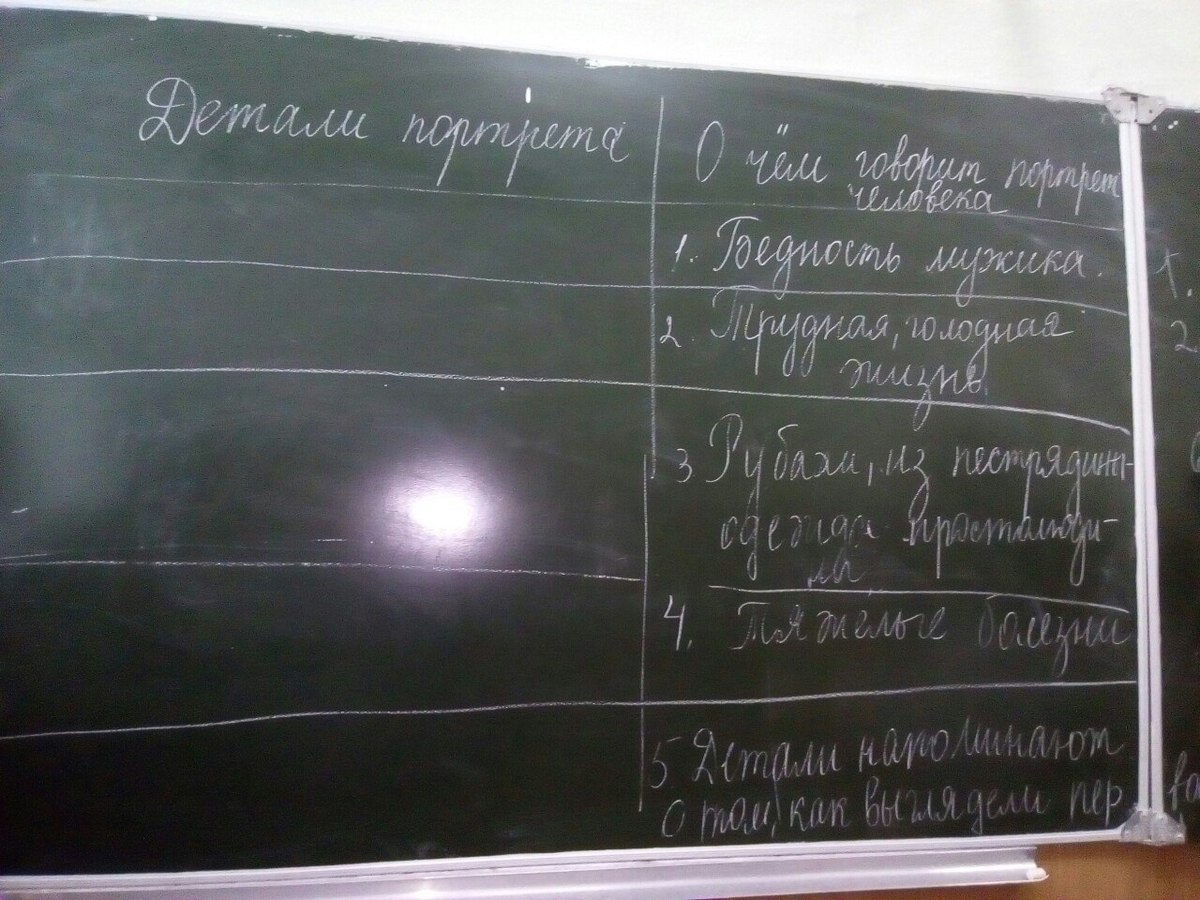 Детали портрета
О чём говорит портрет
человека
1. Бедность мужика.
2. Трудная, голодная
жизнь
3 Рубахи, из пестрядины-
одежда простолюди-
4. Тяжелые болезни
5 Детали напоминают
о том, как выглядели пер
1.
2